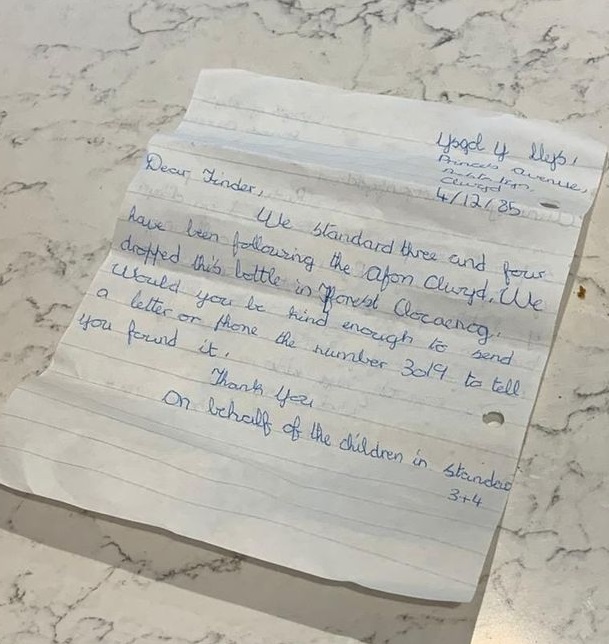 Ysgol y Llys,
Princes Avenue,
Prestatyn
Clwyd
4/12/85
Dear Finder,
We standard three and four
have been following the Afon Clwyd. We
dropped this bottle in Forest Clocaenog.
Would you be kind enough to send
a letter or phone the number 3019 to tell
you found it.
Thank You
On behalf of the children in standard
3+4